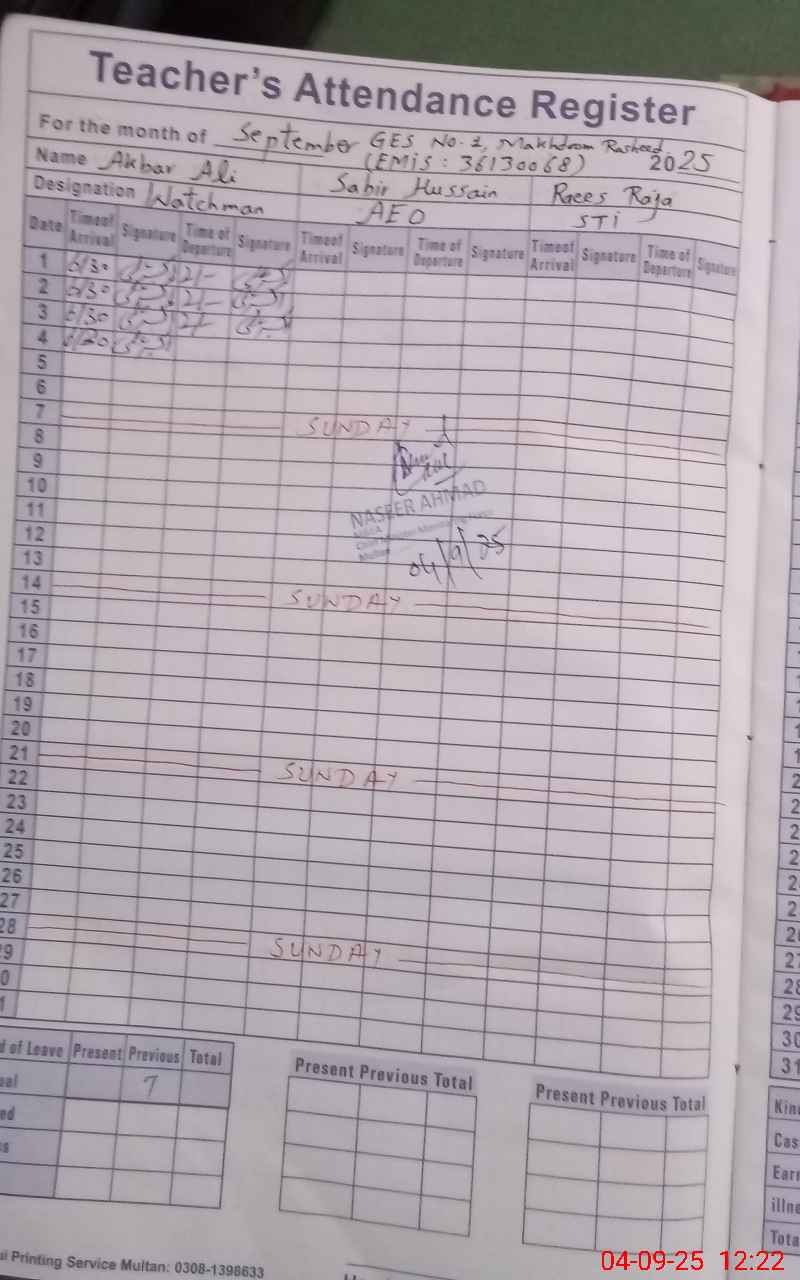 Teacher's Attendance Register
For the month of September GES No. 1, Makhdoom Rasheed
(EMIS : 36130068) 2025
Name Akbar Ali Sabir Hussain Raees Raja
Designation Watchman AEO STI
Date Time of Arrival Signature Time of Departure Signature Time of Arrival Signature Time of Departure Signature Time of Arrival Signature Time of Departure Signature
1 6/30 2/-
2 6/30 2/-
3 6/30 2/-
4
5
6
7 SUNDAY
8
9
10
11 NASEER AHMAD
12
13 04/9/25
14 SUNDAY
15
16
17
18
19
20
21 SUNDAY
22
23
24
25
26
27
28 SUNDAY
29
30
31
d of Leave Present Previous Total
ual 7
ed
Present Previous Total
Present Previous Total
ui Printing Service Multan: 0308-1398633
28
29
30
31
Kin
Cas
Earn
illne
Tota
04-09-25 12:22